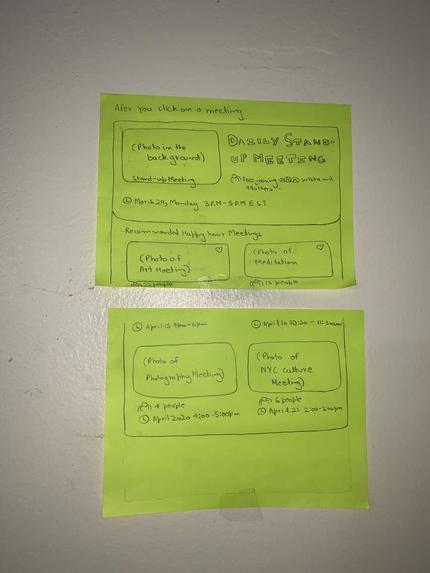 After you click on a meeting
(Photo in the
background)
Stand-up Meeting
DAILY STAND-
UP MEETING
100 joining
others
March 24, Monday 3PM-5PM EST
Recommended Happy hour Meetings
(Photo of
Art Meeting)
22 people
(Photo of
Meditation
12 people
April 15 4pm-6pm
April 10 10:30 -
(Photo of
Photography Meeting)
4 people
April 2020 4:00-5:00pm
(Photo of
NYC culture
Meeting)
6 people
April 21 2:00-3:00pm